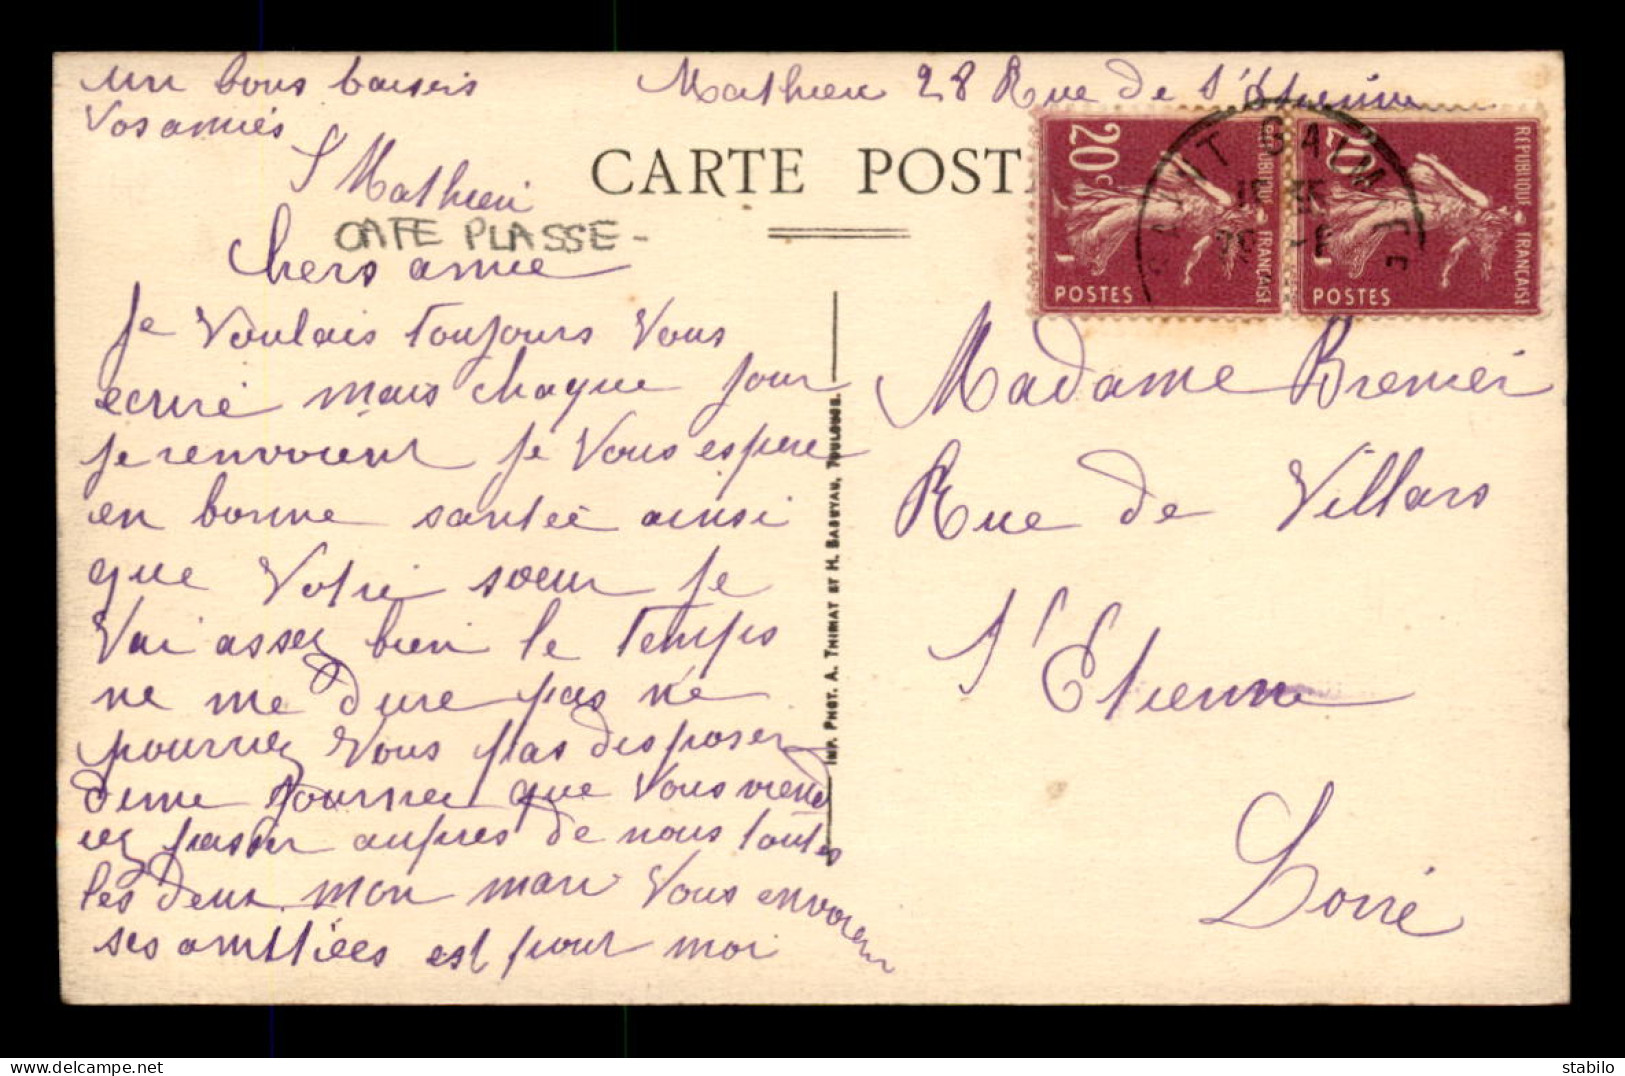 un bons baisers
Vos amiés
S Mathieu
Mathieu 28 Rue de S'Etienne
CARTE POSTA
CAFE PLASSE-
20c
POSTES
REPUBLIQUE FRANÇAISE
20c
POSTES
REPUBLIQUE FRANÇAISE
SAINT GALMIER
Chers amie
Je Voulais Toujours Vous
ecrire mais chaque jour
je renvoient je Vous espere
en bonne santée ainsi
que Votre soeur je
Vai assez bien le Temps
ne me dure pas ne
pourriez Vous pas desposer
dune journee que Vous viend
iez passer aupres de nous toutes
les deux. mon mari Vous envoient
ses amitiées est pour moi
IMP. PHOT. A. THIRIAT ET H. BASUYAU, TOULOUSE.
Madame Brenier
Rue de Villars
S'Etienne
Loire
delcampe.net